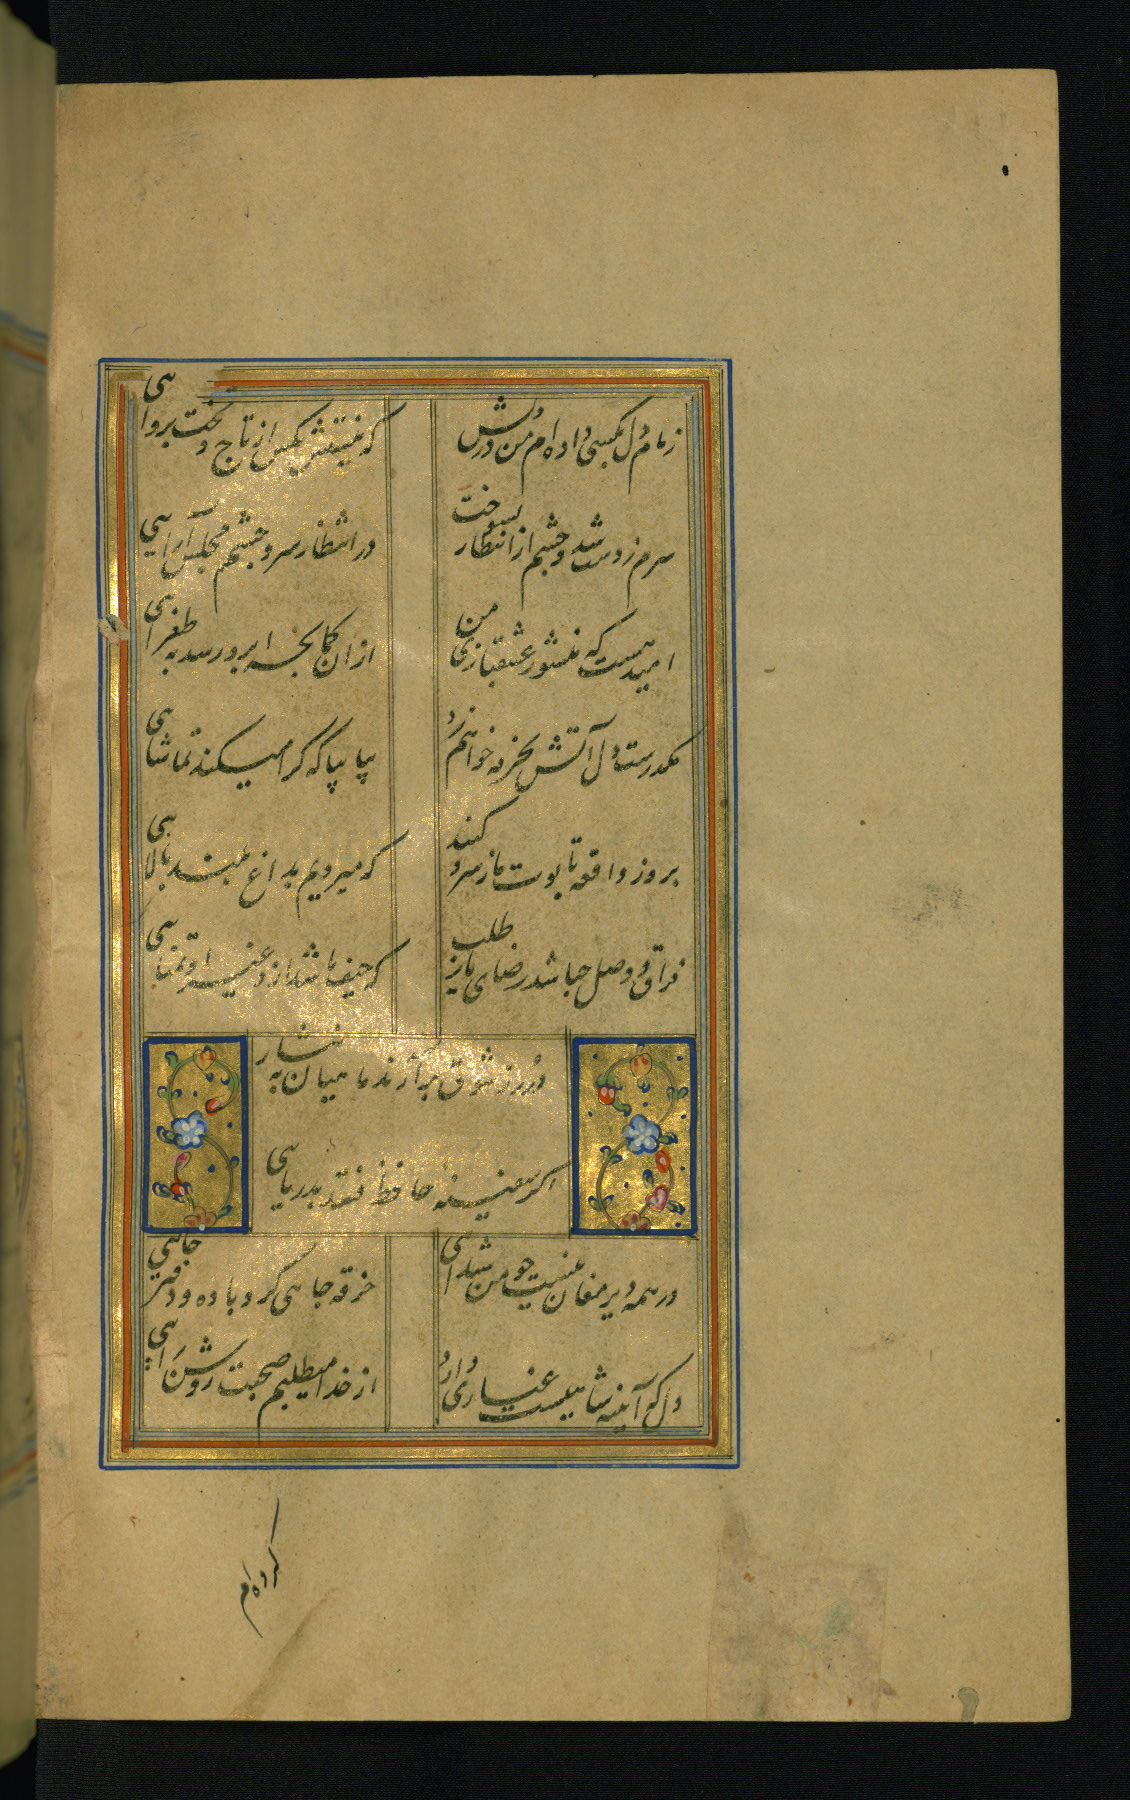 زمام دل بکسی داده‌ام من درویش
که نیستش بکس از تاج و تخت پروایی
سرم ز دست شد و چشم از انتظار بسوخت
در انتظار سر و چشم مجلس آرایی
امید هست که منشور عشقبازی من
از آن کمانچه ابرو رسد به طغرایی
مکدرست دل آتش بخرقه خواهم زد
بیا بیا که کرا میکند تماشایی
بروز واقعه تابوت ما ز سرو کنید
که میرویم بداغ بلند بالایی
فراق و وصل چه باشد رضای یار طلب
که حیف باشد ازو غیر او تمنایی
درر ز شوق برآرند ماهیان به نثار
اگر سفینه حافظ فتد بدریایی
در همه دیر مغان نیست چو من شیدایی
خرقه جایی گرو باده و دفتر جایی
دل که آیینه شاهیست غباری دارد
از خدا میطلبم صحبت روشن رایی
کرده‌ام